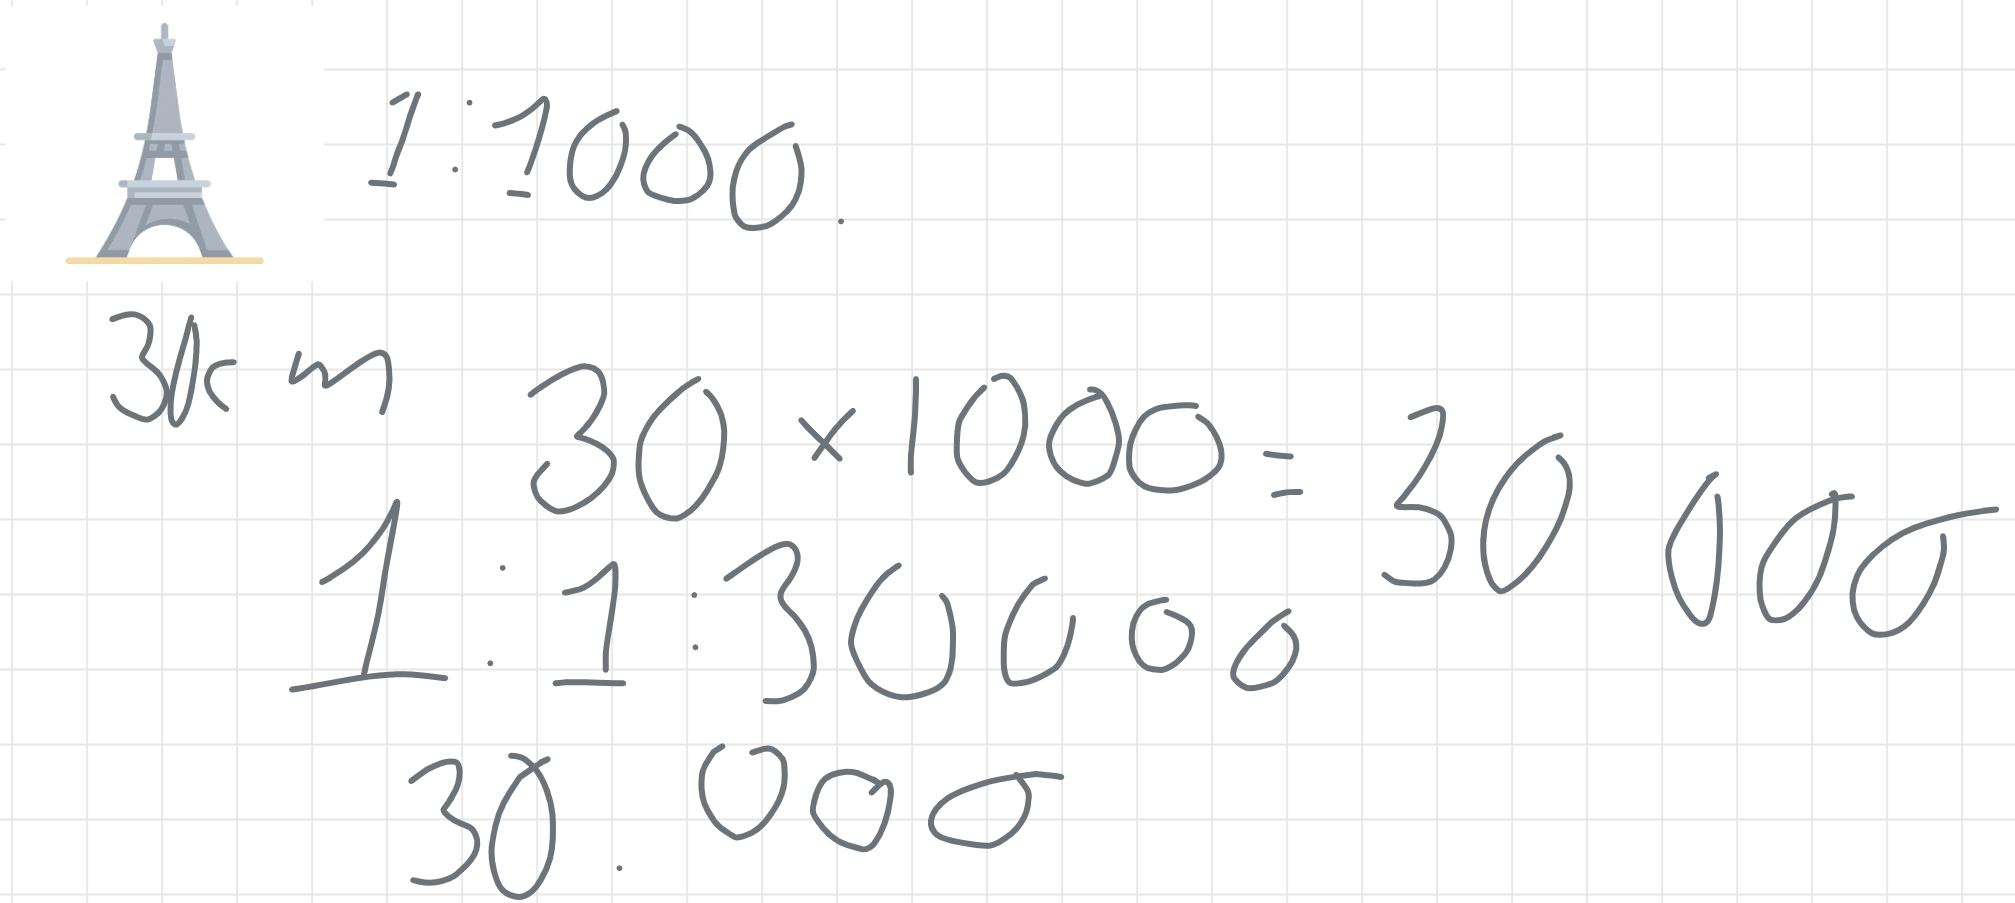 1:1000.
3km
30×1000=30 000
1:1:30000
30.000